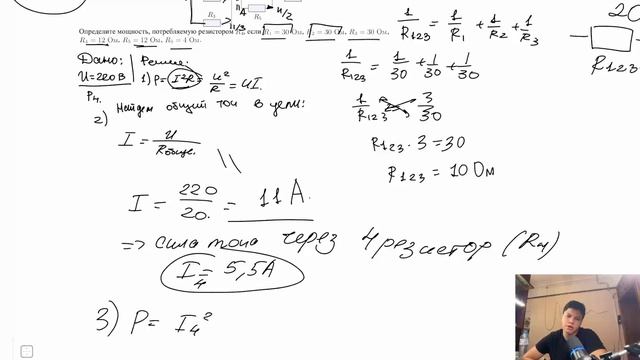 R₃
R₅
I/2
I/3
Определите мощность, потребляемую резистором R₄, если R₁ = 30 Ом, R₂ = 30 Ом, R₃ = 30 Ом,
R₄ = 12 Ом, R₅ = 12 Ом, R₆ = 4 Ом.
Дано: Решение:
U=220В 1) P= I²R = U²/R = UI.
P₄
2) Найдем общий ток в цепи:
I = U/Rобщ.
I = 220/20 = 11 А.
=> сила тока через 4 резистор (R₄)
I₄ = 5,5А
3) P= I₄²
1/R₁₂₃ = 1/R₁ + 1/R₂ + 1/R₃
1/R₁₂₃ = 1/30 + 1/30 + 1/30
1/R₁₂₃ = 3/30
R₁₂₃ · 3 = 30
R₁₂₃ = 10 Ом
20
R₁₂₃